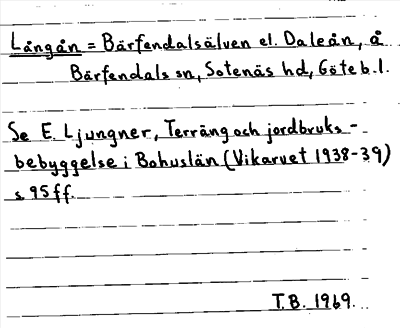 Långån = Bärfendalsälven el. Daleån, å
Bärfendals sn, Sotenäs hd, Göteb.l.
Se E. Ljungner, Terräng och jordbruks-
bebyggelse i Bohuslän (Vikarvet 1938-39)
s. 95 ff.
T.B. 1969.